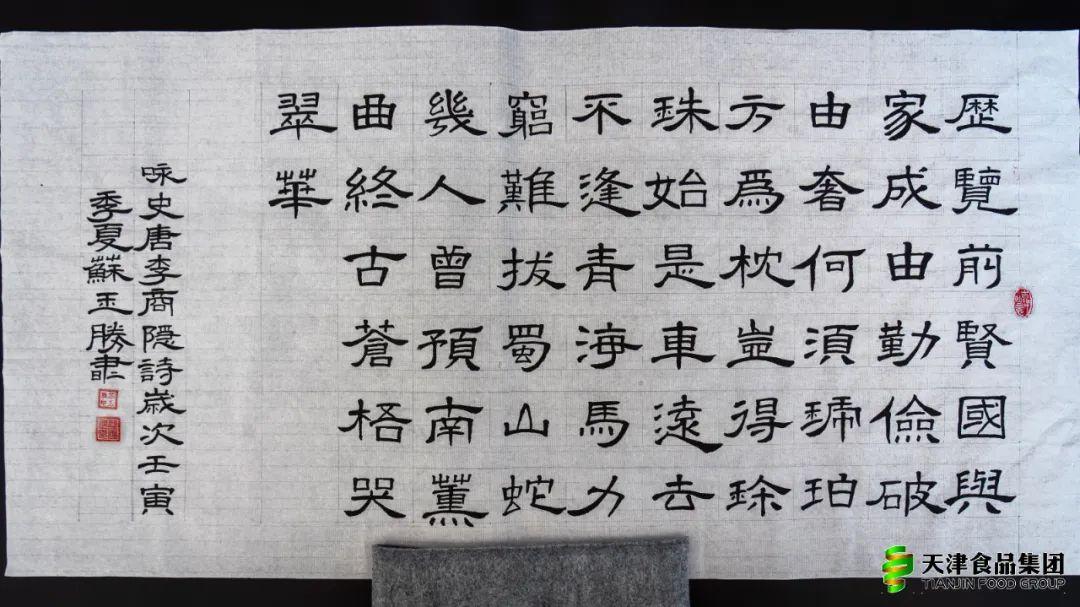 歷覽前賢國與
家成由勤儉破
由奢何須琥珀
方爲枕豈得珍
珠始是車遠去
不逢青海馬力
窮難拔蜀山蛇
幾人曾預南薰
曲終古蒼梧哭
翠華
咏史唐李商隱詩歲次壬寅
季夏蘇玉勝書
天津食品集团
TIANJIN FOOD GROUP